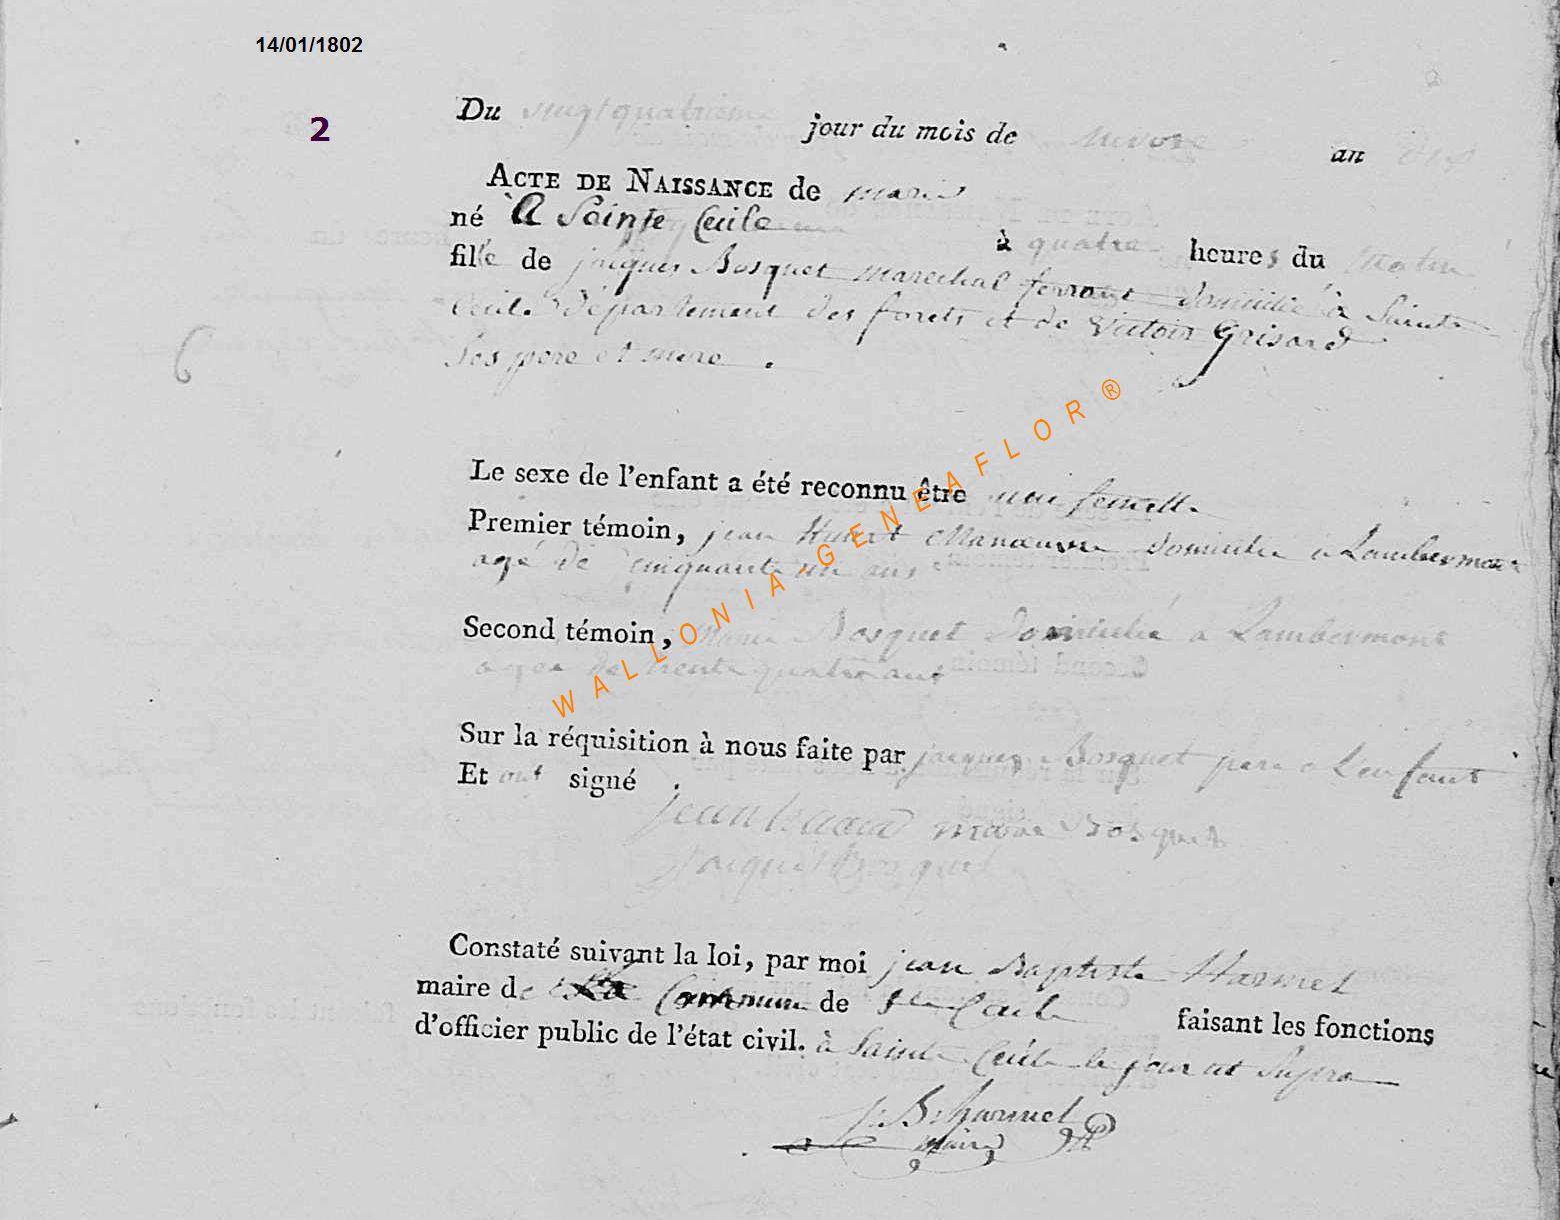 14/01/1802
2
Du vingt quatrieme jour du mois de nivose an dix
ACTE DE NAISSANCE de marie
né A Sainte Cecile à quatre heures du matin
fille de jacques Bosquet marechal ferrant domicilié à Sainte
Cecile département des forets et de Victoire Grisard
Ses pere et mere .
Le sexe de l'enfant a été reconnu être femelle
Premier témoin, jean Manœuvre domicilié a Lambermont
agé de cinquante un ans
Second témoin, Marie Bosquet domiciliée a Lambermont
agée de trente quatre ans
Sur la réquisition à nous faite par jacques Bosquet pere de L'enfant
Et ont signé
marie Bosquet
Jacques Bosquet
Constaté suivant la loi, par moi jean Baptiste Harmel
maire de La Commune de Ste Cecile faisant les fonctions
d'officier public de l'état civil. à Sainte Cécile le jour ut Supra
J: B: harmel
maire
WALLONIA-GENEAFLOR®